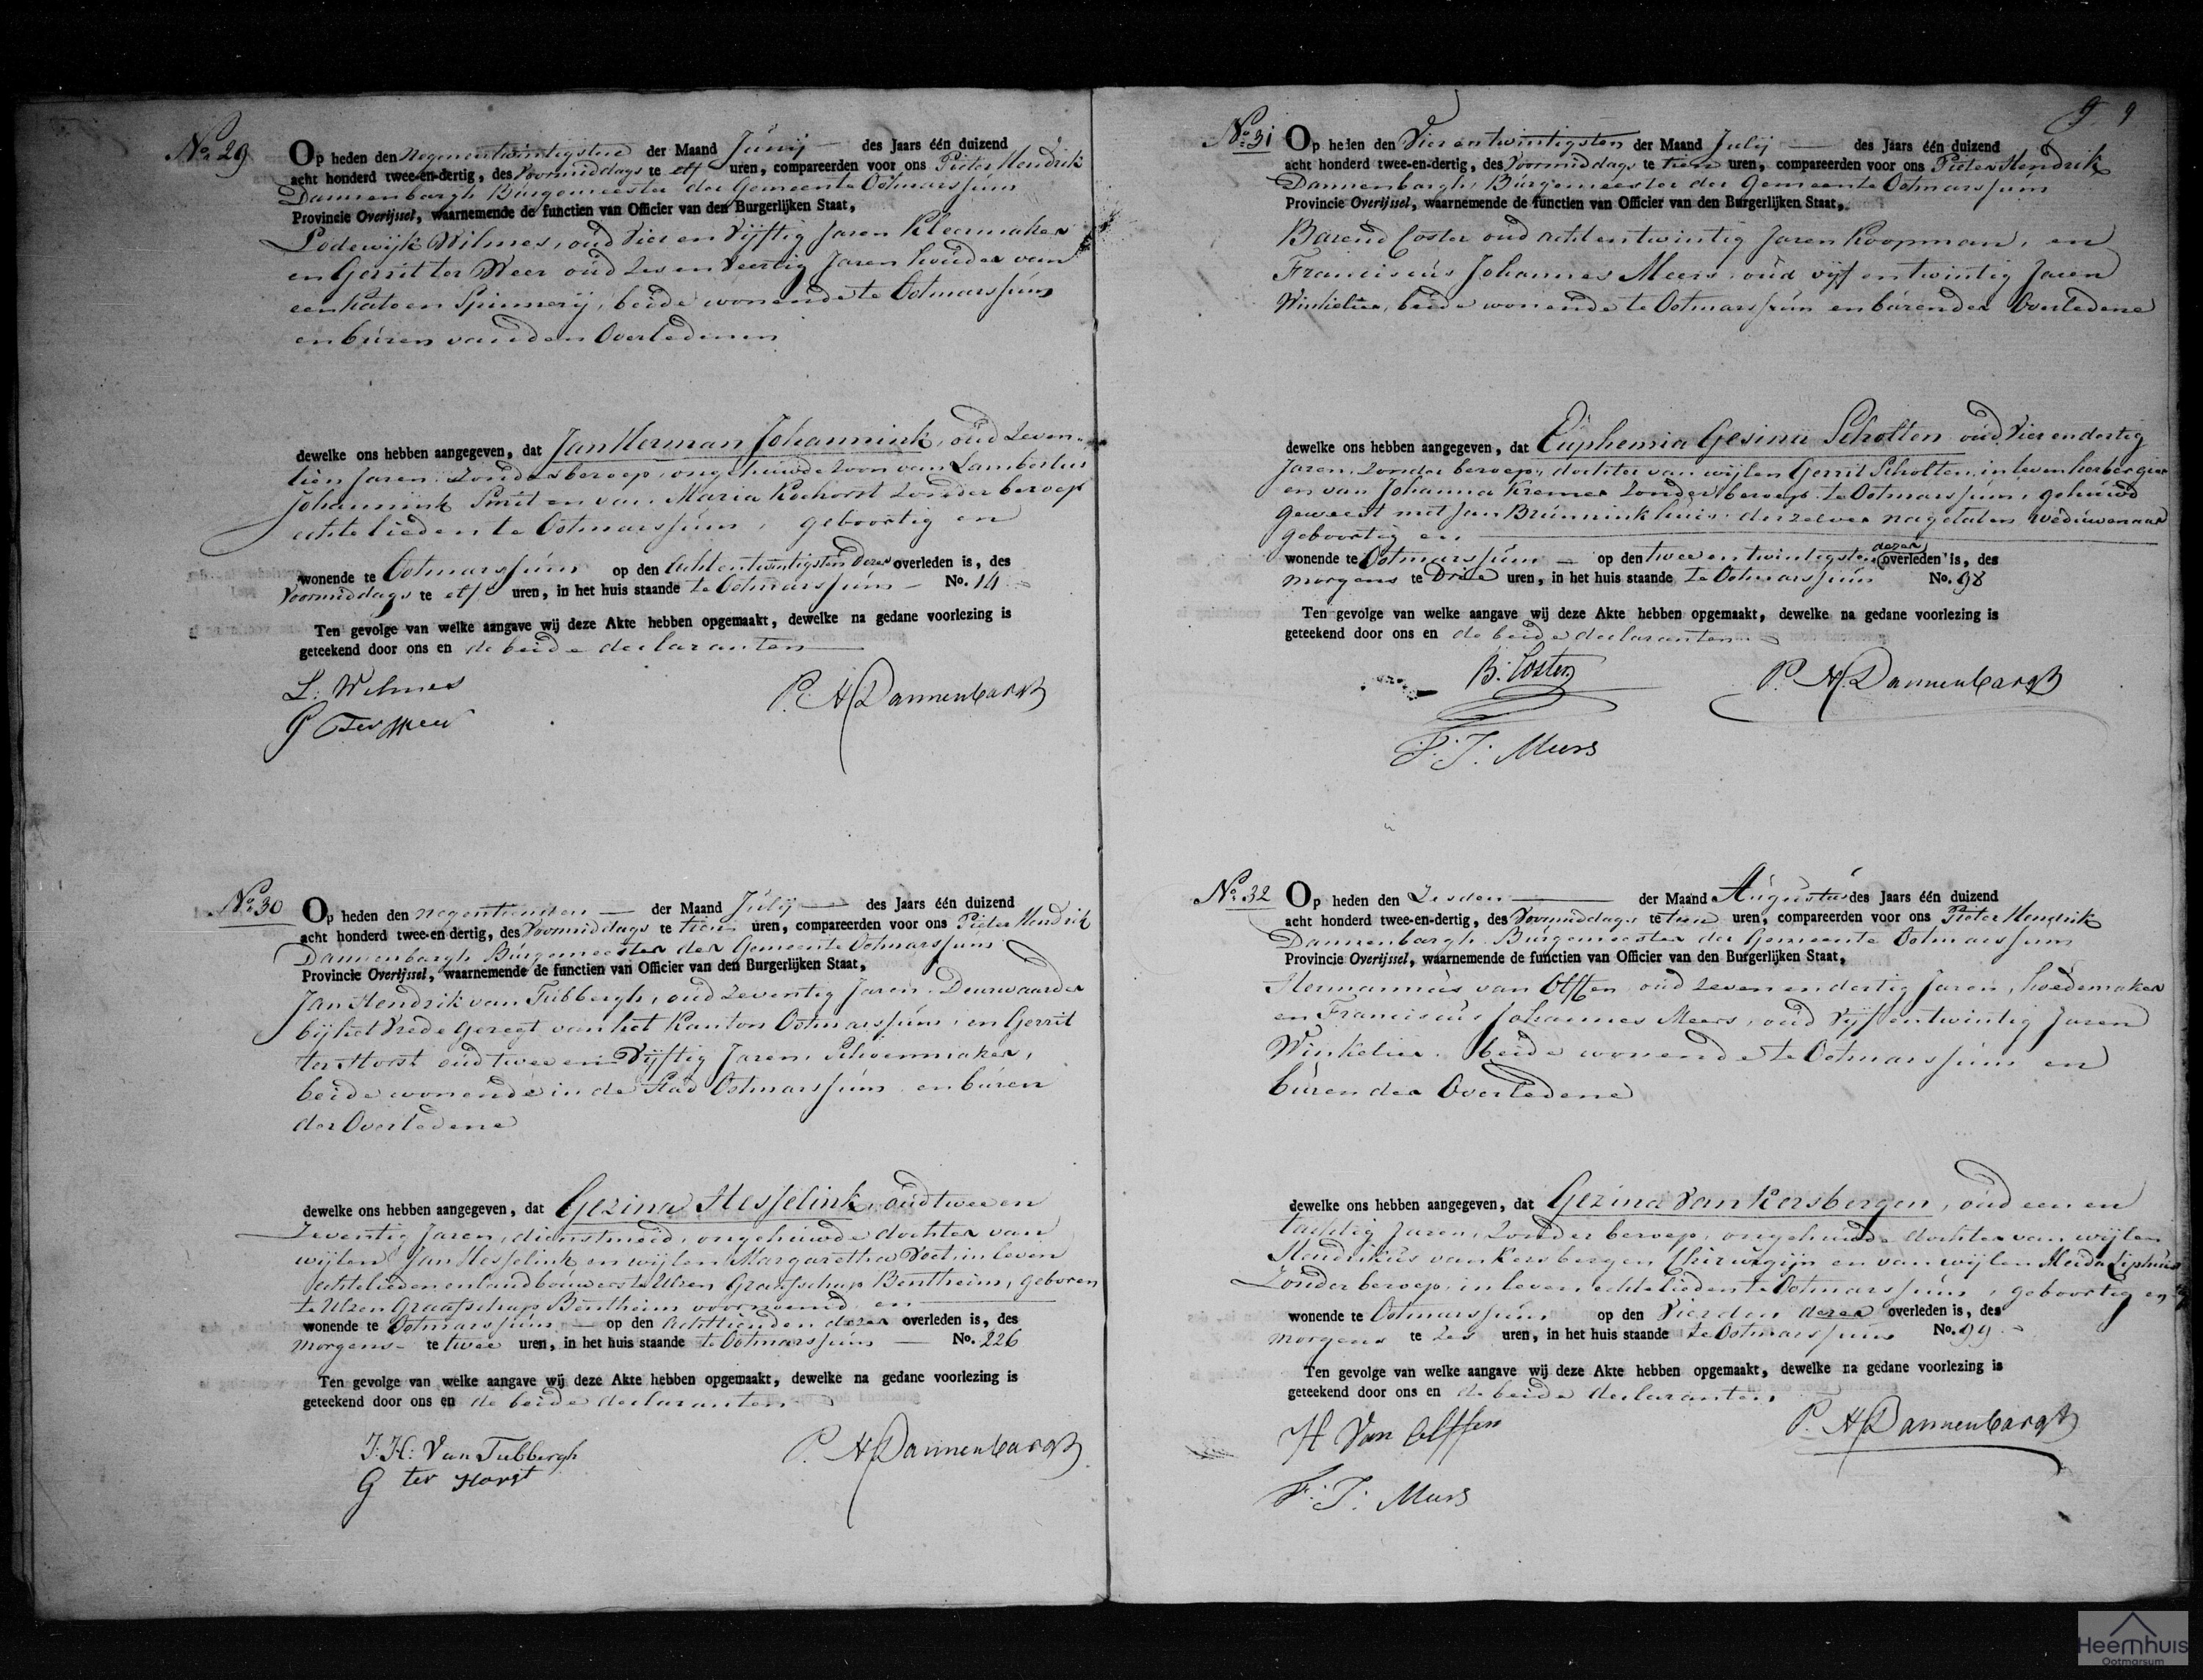 No. 29
Op heden den Negenentwintigsten der Maand Junij des Jaars één duizend
acht honderd twee-en-dertig, des Voormiddags te elf uren, compareerden voor ons Pieter Hendrik
Dannenbargh Burgemeester der Gemeente Ootmarssum
Provincie Overijssel, waarnemende de functien van Officier van den Burgerlijken Staat,
Lodewijk Wilmes, oud Vier en Vijftig Jaren Kleermaker
en Gerrit ter Weer oud Zes en Veertig Jaren houder van
een Katoen Spinnerij, beide wonende te Ootmarssum
en buren van den Overledenen
dewelke ons hebben aangegeven, dat Jan Herman Johannink, oud Zeven-
tien Jaren Zonder beroep, ongehuwde Zoon van Lambertus
Johannink Smit en van Maria Kochorst Zonder beroep
echtelieden te Ootmarssum, geboortig en
wonende te Ootmarssum op den Achtentwintigsten dezer overleden is, des
Voormiddags te elf uren, in het huis staande te Ootmarssum No. 14
Ten gevolge van welke aangave wij deze Akte hebben opgemaakt, dewelke na gedane voorlezing is
geteekend door ons en de beide declaranten
L: Wilmes
P. H Dannenbargh
G Ter Weer
No. 30
Op heden den negentienden der Maand Julij des Jaars één duizend
acht honderd twee-en dertig, des Voormiddags te tien uren, compareerden voor ons Pieter Hendrik
Dannenbargh Burgemeester der Gemeente Ootmarssum
Provincie Overijssel, waarnemende de functien van Officier van den Burgerlijken Staat,
Jan Hendrik van Tubbergh, oud Zeventig Jaren Deurwaarder
bij het Vrede Geregt van het Kanton Ootmarssum, en Gerrit
ter Horst oud twee en Vijftig Jaren, Schoenmaker,
beide wonende in de Stad Ootmarssum en buren
der Overledene
dewelke ons hebben aangegeven, dat Gezina Hesselink, oud twee en
Zeventig Jaren, dienstmeid, ongehuwde dochter van
wijlen Jan Hesselink en wijlen Margaretha Voet, in leven
echtelieden en landbouwers te Ulzen Graafschap Bentheim, geboren
te Ulzen Graafschap Bentheim voornoemd en
wonende te Ootmarssum op den Achttienden dezer overleden is, des
morgens te twee uren, in het huis staande te Ootmarssum No. 226
Ten gevolge van welke aangave wij deze Akte hebben opgemaakt, dewelke na gedane voorlezing is
geteekend door ons en de beide declaranten
J: H: Van Tubbergh
P. H Dannenbargh
G ter Horst
9 9
No. 31
Op heden den Vier en twintigsten der Maand Julij des Jaars één duizend
acht honderd twee-en-dertig, des Voormiddags te tien uren, compareerden voor ons Pieter Hendrik
Dannenbargh, Burgemeester der Gemeente Ootmarssum
Provincie Overijssel, waarnemende de functien van Officier van den Burgerlijken Staat,
Barend Coster oud acht en twintig Jaren Koopman, en
Franciscus Johannes Meers oud vijf en twintig Jaren
Winkelier, beide wonende te Ootmarssum en buren der Overledene
dewelke ons hebben aangegeven, dat Euphemia Gesina Scholten oud Vier en dertig
Jaren, Zonder beroep, dochter van wijlen Gerrit Scholten, in leven herbergier
en van Johanna Kremer Zonder beroep te Ootmarssum, gehuwd
geweest met Jan Brunninkhuis, derzelver nagelaten Weduwenaar
geboortig en
wonende te Ootmarssum op den twee en twintigsten dezer overleden is, des
morgens te Drie uren, in het huis staande te Ootmarssum No. 98
Ten gevolge van welke aangave wij deze Akte hebben opgemaakt, dewelke na gedane voorlezing is
geteekend door ons en de beide declaranten
B: Coster
P. H. Dannenbargh
F: J: Meers
No. 32
Op heden den Zesden der Maand Augustus des Jaars één duizend
acht honderd twee-en-dertig, des Voormiddags te tien uren, compareerden voor ons Pieter Hendrik
Dannenbargh Burgemeester der Gemeente Ootmarssum
Provincie Overijssel, waarnemende de functien van Officier van den Burgerlijken Staat,
Hermannus van Olffen oud Zeven en dertig Jaren, hoedemaker
en Franciscus Johannes Meers, oud Vijf en twintig Jaren
Winkelier, beide wonende te Ootmarssum en
buren der Overledene
dewelke ons hebben aangegeven, dat Gezina Van Kersbergen, oud een en
tachtig Jaren, Zonder beroep, ongehuwde dochter van wijlen
Hendrikus van Kersbergen Chirurgijn en van wijlen
Zonder beroep, in leven echtelieden te Ootmarssum, geboortig en
wonende te Ootmarssum op den Vierden dezer overleden is, des
morgens te Zes uren, in het huis staande te Ootmarssum No. 99
Ten gevolge van welke aangave wij deze Akte hebben opgemaakt, dewelke na gedane voorlezing is
geteekend door ons en de beide declaranten,
H Van Olffen
P. H Dannenbargh
F: J: Meers
Heemhuis
Ootmarsum